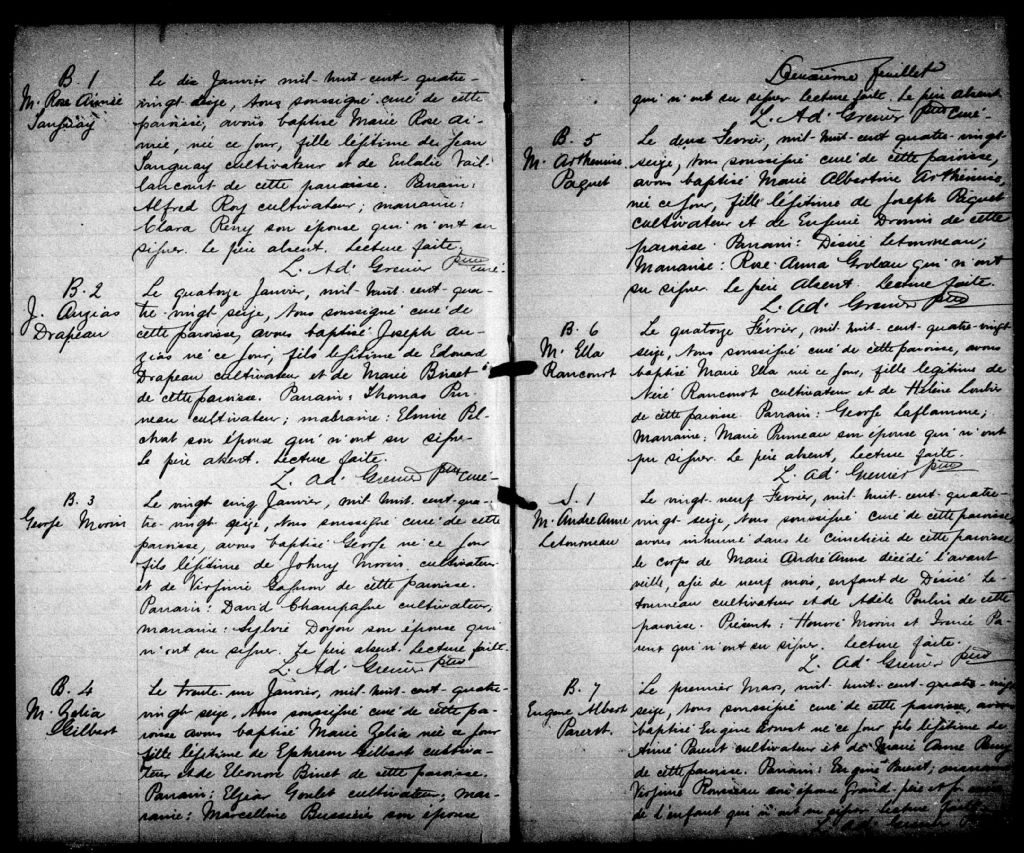 B. 1
M. Rose Aimée
Tanguay
Le dix Janvier mil-huit-cent-quatre-
vingt-seize, Nous soussigné curé de cette
paroisse, avons baptisé Marie Rose Ai-
mée, née ce jour, fille légitime de Jean
Tanguay cultivateur et de Eulalie Vail-
lancourt de cette paroisse. Parrain:
Alfred Roy cultivateur; marraine:
Clara Rémy son épouse qui n'ont su
signer. Le père absent. Lecture faite.
L. Ad. Grenier ptre curé.
B. 2
J. Auzias
Drapeau
Le quatorze Janvier, mil-huit-cent-qua-
tre-vingt seize, Nous soussigné curé de
cette paroisse, avons baptisé Joseph Au-
zias né ce jour, fils légitime de Edouard
Drapeau cultivateur et de Marie Binet
de cette paroisse. Parrain: Thomas Pru-
neau cultivateur; marraine: Elmire Pel-
chat son épouse qui n'ont su signer
Le père absent. Lecture faite.
L. Ad. Grenier ptre curé.
B. 3
George Morin
Le vingt cinq Janvier, mil huit cent-qua-
tre-vingt seize, Nous soussigné curé de cette
paroisse, avons baptisé George né ce jour
fils légitime de Johny Morin cultivateur
et de Virginie Gagnon de cette paroisse.
Parrain: David Champagne cultivateur,
marraine: Sylvie Doyon son épouse qui
n'ont su signer. Le père absent. Lecture faite.
L. Ad. Grenier ptre
B. 4
M. Zélia
Gilbert
Le trente-un Janvier, mil-huit-cent-quatre-
vingt seize, Nous soussigné curé de cette pa-
roisse avons baptisé Marie Zélia née ce jour
fille légitime de Ephrem Gilbert cultiva-
teur et de Eleonor Binet de cette paroisse.
Parrain: Elzéar Goulet cultivateur; mar-
raine: Marcelline Bussière son épouse
Deuxième feuillet
qui n'ont su signer lecture faite. Le père absent
L. Ad. Grenier ptre curé.
B. 5
M. Arthemise
Paquet
Le deux Février, mil-huit-cent quatre-vingt-
seize, Nous soussigné curé de cette paroisse,
avons baptisé Marie Albertine Arthémise,
née ce jour, fille légitime de Joseph Paquet
cultivateur et de Eugénie Drouin de cette
paroisse. Parrain: Désiré Letourneau;
Marraine: Rose-Anna Groleau qui n'ont
su signer. Le père Absent. Lecture faite.
L. Ad. Grenier ptre
B. 6
M. Ella
Rancourt
Le quatorze Février, mil-huit-cent-quatre-vingt
seize, Nous soussigné curé de cette paroisse, avons
baptisé Marie Ella née ce jour, fille légitime de
Néré Rancourt cultivateur et de Hélène
de cette paroisse. Parrain: George Laflamme;
Marraine: Marie Pruneau son épouse qui n'ont
pu signer. Le père absent, Lecture faite.
L. Ad. Grenier ptre
S. 1
M. Andre Anne
Letourneau
Le vingt-neuf Février, mil-huit-cent-quatre-
vingt-seize, Nous soussigné curé de cette paroisse
avons inhumé dans le Cimetière de cette paroisse
le corps de Marie André Anne décédé l'avant
veille, agée de neuf mois, enfant de Désiré Le-
tourneau cultivateur et de Adèle Poulin de cette
paroisse. Présents: Honoré Morin et Irénée Pa-
rent qui n'ont su signer. Lecture faite.
L. Ad. Grenier ptre
B. 7
Eugène Albert
Parent.
Le premier Mars, mil-huit-cent-quatre-vingt
seize, Nous soussigné curé de cette paroisse, avons
baptisé Eugène né ce jour fils légitime de
Aimé Parent cultivateur et de Marie Anne
de cette paroisse. Parrain: Eugène Parent; marraine
Virginie son épouse Grand-père et
de l'enfant qui n'ont su signer lecture faite
L. Ad. Grenier